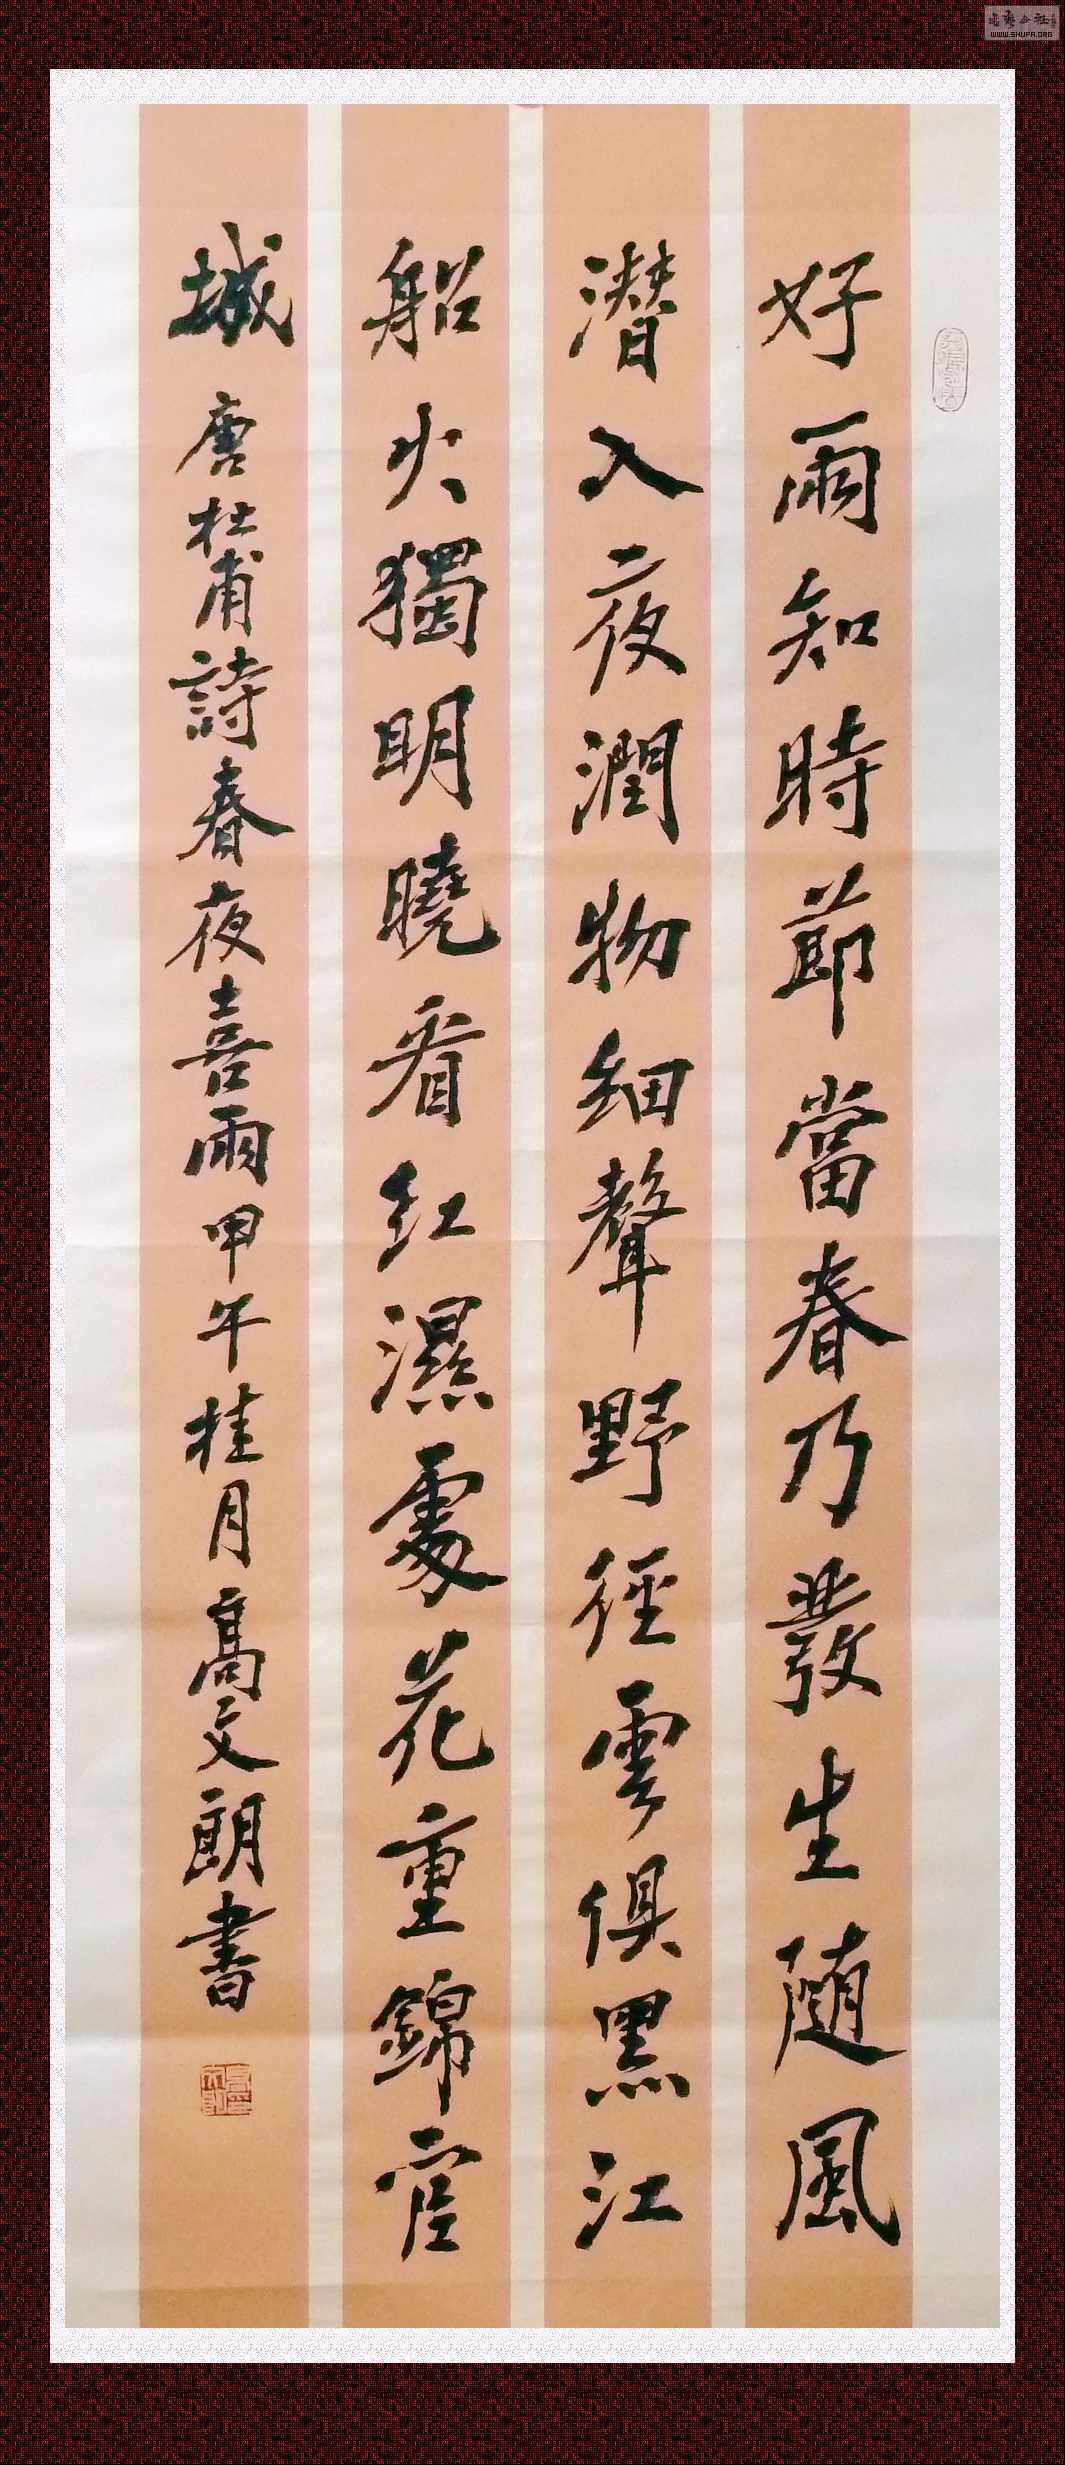 好雨知時節當春乃發生隨風
潛入夜潤物細聲野徑雲俱黑江
船火獨明曉看紅濕處花重錦官
城
唐杜甫詩春夜喜雨甲午桂月高文朗書
WWW.SHUFA.ORG